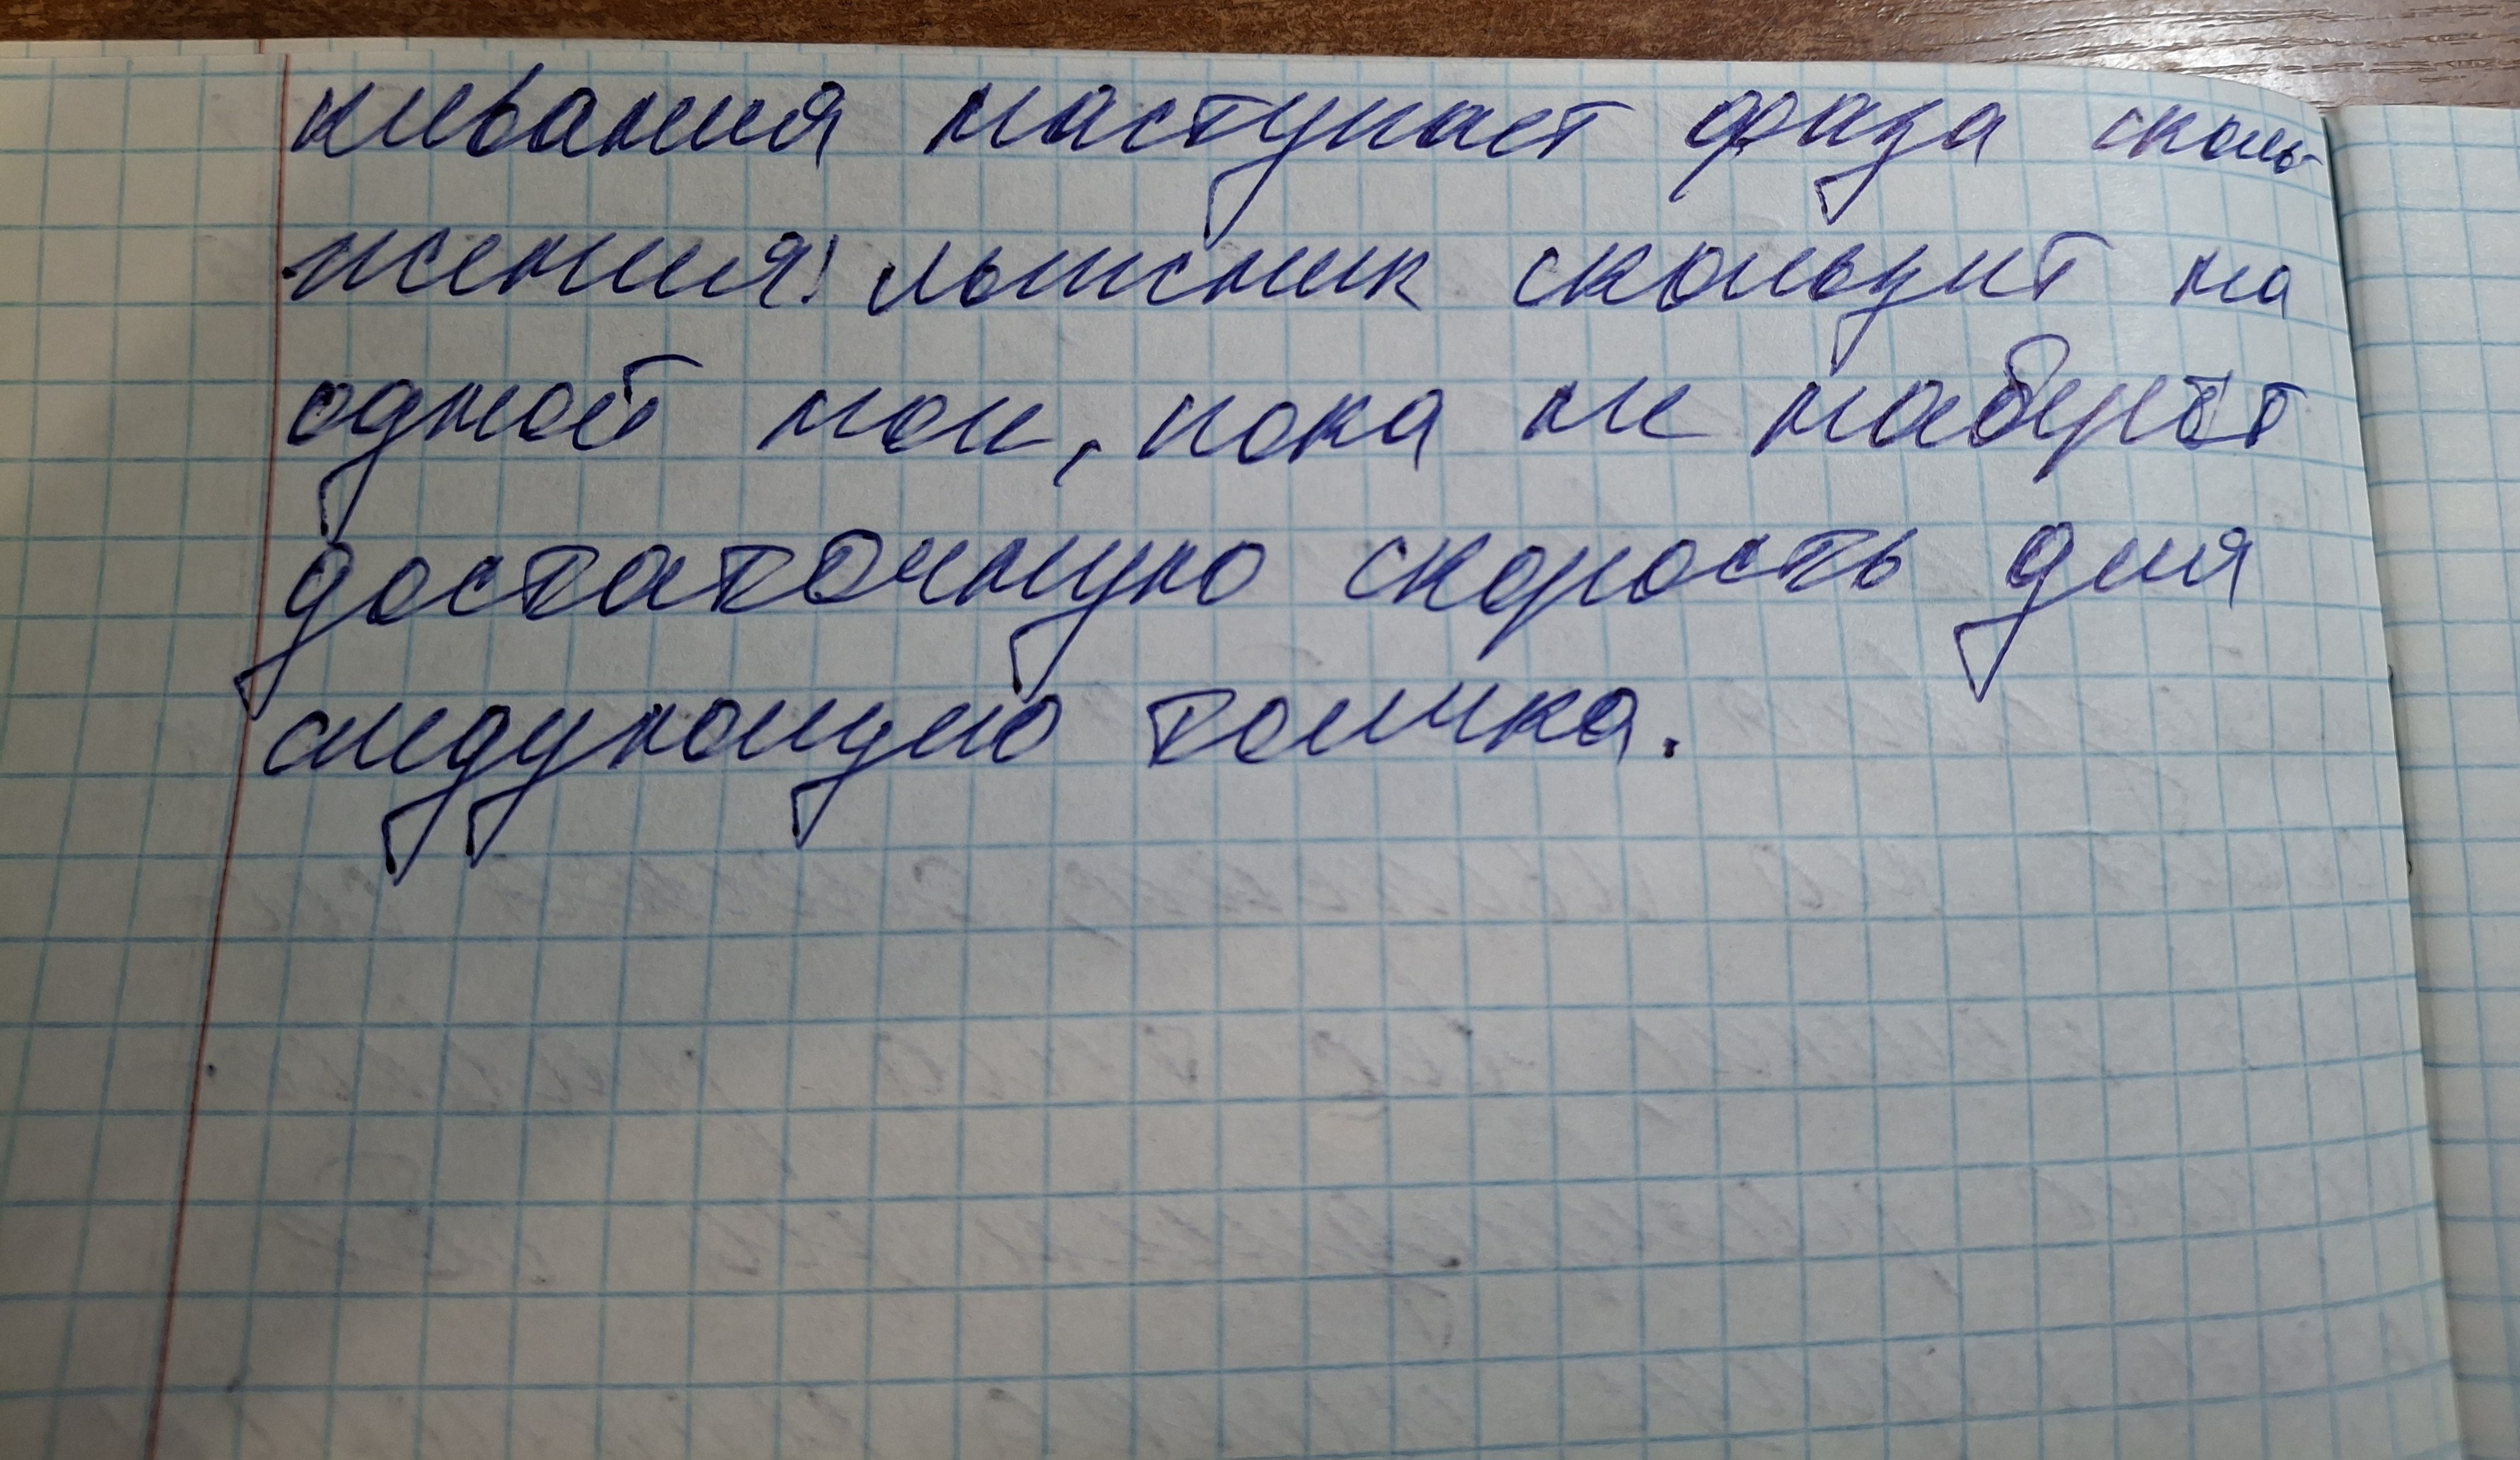 кивания наступает фаза сколь-
жения: лыжник скользит на
одной ноге, пока не наберёт
достаточную скорость для
следующую толчка.